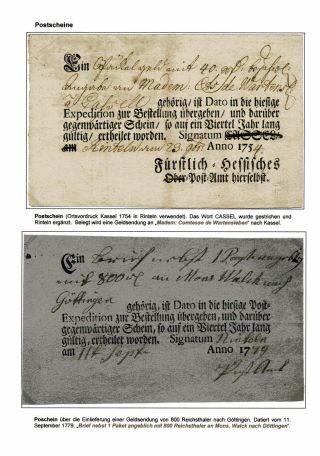 Postscheine
Ein Päckel geld mit 40
an Madem: Comtesse de Wartens
à Cassell gehörig/ ist Dato in die hiesige
Expedition zur Bestellung übergeben/ und darüber
gegenwärtiger Schein/ so auf ein Viertel Jahr lang
gültig/ ertheilet worden. Signatum CASSEL
am Rinteln den 23. Anno 1754
Fürstlich-Hessisches
Ober-Post-Amt hierselbst.
Postschein (Ortsvordruck Kassel 1754 in Rinteln verwendet). Das Wort CASSEL wurde gestrichen und
Rinteln ergänzt. Belegt wird eine Geldsendung an „Madem: Comtesse de Wartensleben“ nach Kassel.
Ein Brief nebst 1 Paquet angebl
mit 800 an Mons Walck nach
Göttingen gehörig, ist Dato in die hiesige Post-
Expedition zur Bestellung übergeben, und darüber
gegenwärtiger Schein, so auf ein Viertel Jahr lang
gültig, ertheilet worden. Signatum Rinteln
am 11t Sept: Anno 1779
Post Amt
Poschein über die Einlieferung einer Geldsendung von 800 Reichsthaler nach Göttingen. Datiert vom 11.
September 1779. „Brief nebst 1 Paket angeblich mit 800 Reichsthaler an Mons. Walck nach Göttingen“.